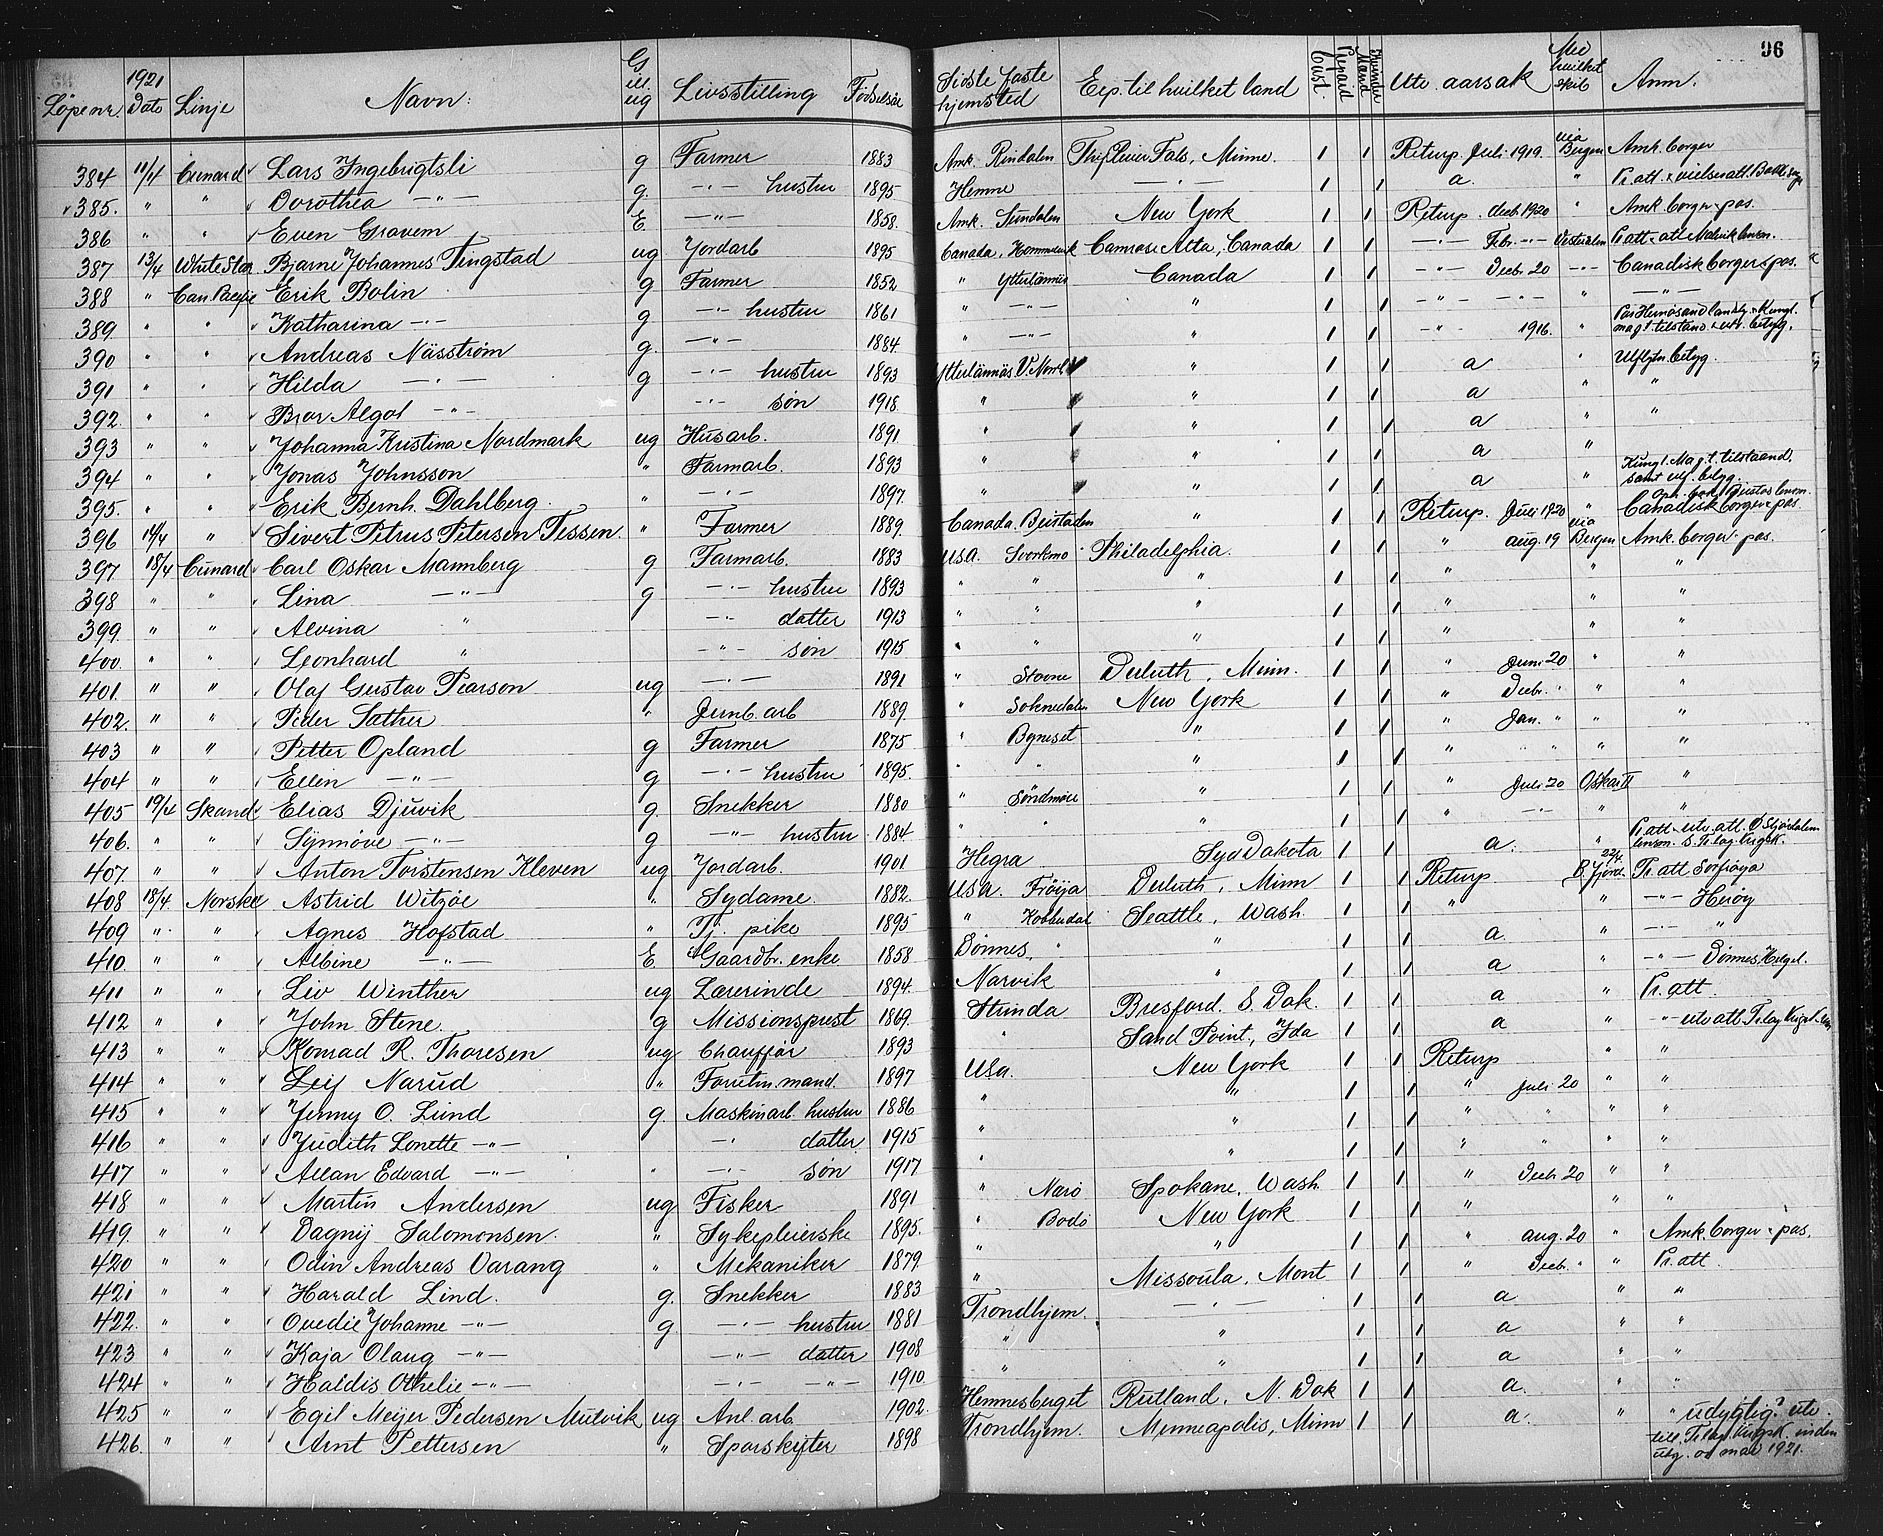 96
Löpenr. 1921 Dato Linje Navn: G ell. ug Livsstilling Födselsår Sidste faste hjemsted Exp. til hvilket land Cust. Prepaid Mand Kvinder Utv. aarsak Med hvilket skib Anm.
384 11/4 Cunard Lars Ingebrigtsli g Farmer 1883 Amk. Rindalen Thif River Fals, Minne. 1 1 Returp. Juli 1919. via Bergen Amk. borger
385. " " Dorothea —"— g. —"— hustru 1895 Hemne —"— 1 1 a. " Pr. att. & vielsesatt.
386 " " Even Gravem E. —"— 1858. Amk. Sundalen New York 1 1 Returp. decb. 1920 " Amk. borger pas.
387 13/4 White Star Bjarne Johannes Tingstad ug Jordarb 1895 Canada, Camrose Alta, Canada 1 1 —"— Febr. —"— Pr. att.
388 " Can. Pacific Erik Bolin g Farmer 1852 " Ytterlännäs Canada 1 1 —"— Decb. 20 —"— Canadisk borgerspas.
389. " " Katharina —"— g —"— hustru 1861 " —"— " 1 1 —"— —"— " —"—
390 " " Andreas Näsström g. —"— 1884. " —"— " 1 1 —"— 1916. "
391 " " Hilda —"— g —"— hustru 1893 Ytterlännäs V. Norrl. " 1 1 a "
392. " " Bror Algot —"— —"— søn 1918. " " 1 1 a " "
393 " " Johanna Kristina Nordmark ug Husarb. 1891 " " 1 1 a " "
394 " " Jonas Johnsson " Farmarb. 1893 " " 1 1 a " Kungl. Mag:t. tilstaand.
395. " " Erik Bernh. Dahlberg. " —"— 1897. " " 1 1 a "
396 14/4 " Sivert Petrus Petersen Tessen. " Farmer 1889. Canada. Beistaden " 1 1 Returp. Juli 1920 " Canadisk borger pas
397. 18/4 Cunard Carl Oskar Mannberg g Farmarb. 1883 Usa. Svorkmo Philadelphia. 1 1 " aug. 19 via Bergen Amk. borger. pas.
398 " " Lina —"— g —"— hustru 1893 " " " 1 1 " " "
399. " " Alvina " —"— datter 1913 " " " 1 1 " " "
400. " " Leonhard " —"— søn 1915 " " " 1 1 " " "
401. " " Olaf Gustav Pearson ug —"— 1891 " Duluth, Minn. 1 1 " Juni 20 " "
402. " " Peder Sæther " Jernb. arb 1889. " Soknedalen New York 1 1 " Decb. " " "
403 " " Petter Opland g Farmer 1875 " Bynæset " 1 1 " Jan. " " "
404 " " Ellen —"— g —"— hustru 1895. " " " 1 1 " " " " "
405 19/4 Skand. Elias Djuvik g. Snekker 1880 " Söndmöre " 1 1 " Juli 20 Oskar II "
406. " " Synnöve —"— g —"— hustru 1884. " " " 1 1 " —"— " "
407. " " Anton Torstensen Kleven ug Jordarb. 1901. Hegra Syd Dakota 1 1 a. " Pr. att. utv. att.
408 18/4. Norske Astrid Witzøe " Sydame. 1882. Usa. Frøya Duluth, Minn 1 1 Returp 22/4. B. Fjord. Pr. att Sörfröya
409 " " Agnes Hofstad " Tj. pike 1895 " Kobbedal Seattle, Wash. 1 1 " " —"— Herøy
410. " " Albine —"— E. Gaardbr. enke 1858 Dönnes. " 1 1 a. " —"— "
411 " " Liv Winther ug Lærerinde 1894. Narvik " 1 1 a " —"— Dönnes Helgel.
412 " " John Stene. g Missionsprest 1869. Strinda Bresford. S. Dak. 1 1 a " Pr. att.
413 " " Konrad R. Thoresen ug Chauffør 1893 " Sand Point, Ida 1 1 a " " utv att.
414 " " Leif Narud " Forretn. mand. 1897 Usa. New York 1 1 Returp " "
415 " " Jenny O. Lund g. Maskinarb. hustru 1886 " " 1 1 " juli 20 " "
416 " " Judith Lonette —"— —"— datter 1915 " " 1 1 " " " "
417 " " Allan Edvard —"— " —"— søn 1917 " " 1 1 " " " "
418 " " Martin Andersen ug Fisker 1891 " Nærö Spokane, Wash. 1 1 " Decb. 20 " "
419. " " Dagny Salomonsen. " Sykepleierske 1895. " Bodö New York 1 1 " " "
420 " " Odin Andreas Varang " Mekaniker 1879. " " 1 1 " aug. 20 " Amk. borger pas.
421 " " Harald Lind. g. Snekker 1883 " Missoula, Mont 1 1 " Decb. " " Pr. att.
422. " " Ovedie Johanne —"— g —"— hustru 1881 Trondhjem. —"— 1 1 a " "
423 " " Kaja Olaug —"— —"— datter 1908 " " 1 1 a " "
424 " " Haldis Othelie —"— —"— —"— 1910. " " 1 1 a " "
425 " " Egil Meijer Pedersen Mulvik ug Anl. arb 1902. Hemnesberget Rutland, N. Dak 1 1 a. " "
426. " " Arnt Pettersen " Sporskifter 1898 Trondhjem. Menneapolis, Minn 1 1 a. " " udygtig? utv.
inden
mai 1921.